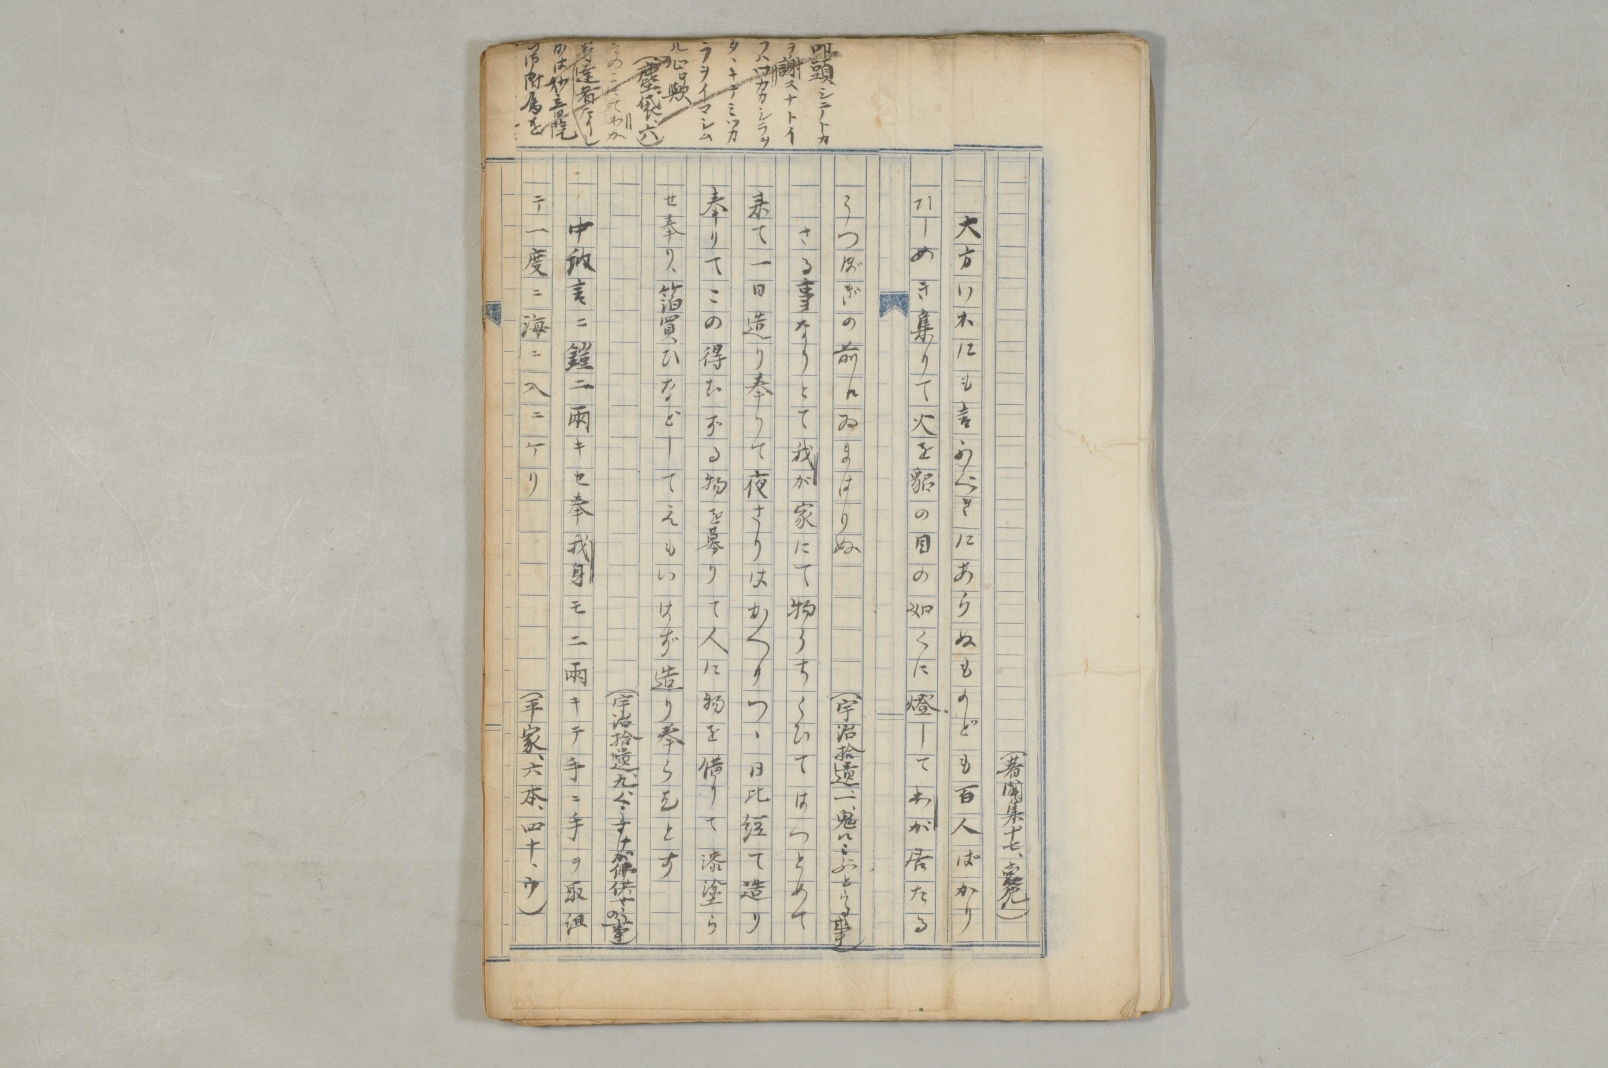 ヲ謝スナトイ
タヽキテミツカ
ラヲイマシム
ル心ロ歟
(塵袋、六)
(著聞集十七、変化)
大方いかにも言ふべきにあらぬものども百人ばかり
ひしめき集りて火を貂の目の如くに燈してわが居たる
うつぼぎの前にゐまはりぬ
(宇治拾遺一、鬼にこぶとらるる事)
さる事なりとて我が家にて物うちくひてはつとめて
来て一日造り奉りて夜さりはかへりつヽ日比経て造り
奉りてこの得むずる物を募りて人に物を借りて漆塗ら
せ奉り、箔買ひなどしてえもいはず造り奉らむとす
(宇治拾遺九、くうすけが仏供やうの事)
中納言ニ鎧二両キセ奉我身モ二両キテ手ニ手ヲ取組
テ一度ニ海ニ入ニケリ
(平家、六本、四十、ウ)